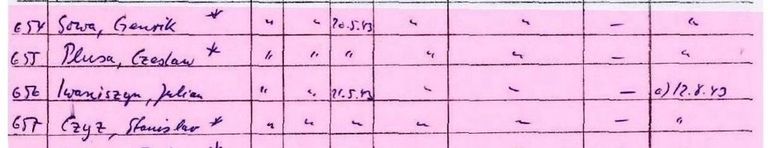 654 Sowa, Henrik * " " 20.5.43 " " — "
655 Plusa, Czeslaw * " " " " " — "
656 Iwaniszyn, Julian " " 21.5.43 " " — a) 12.8.43
657 Czyz, Stanislav * " " " " " — "